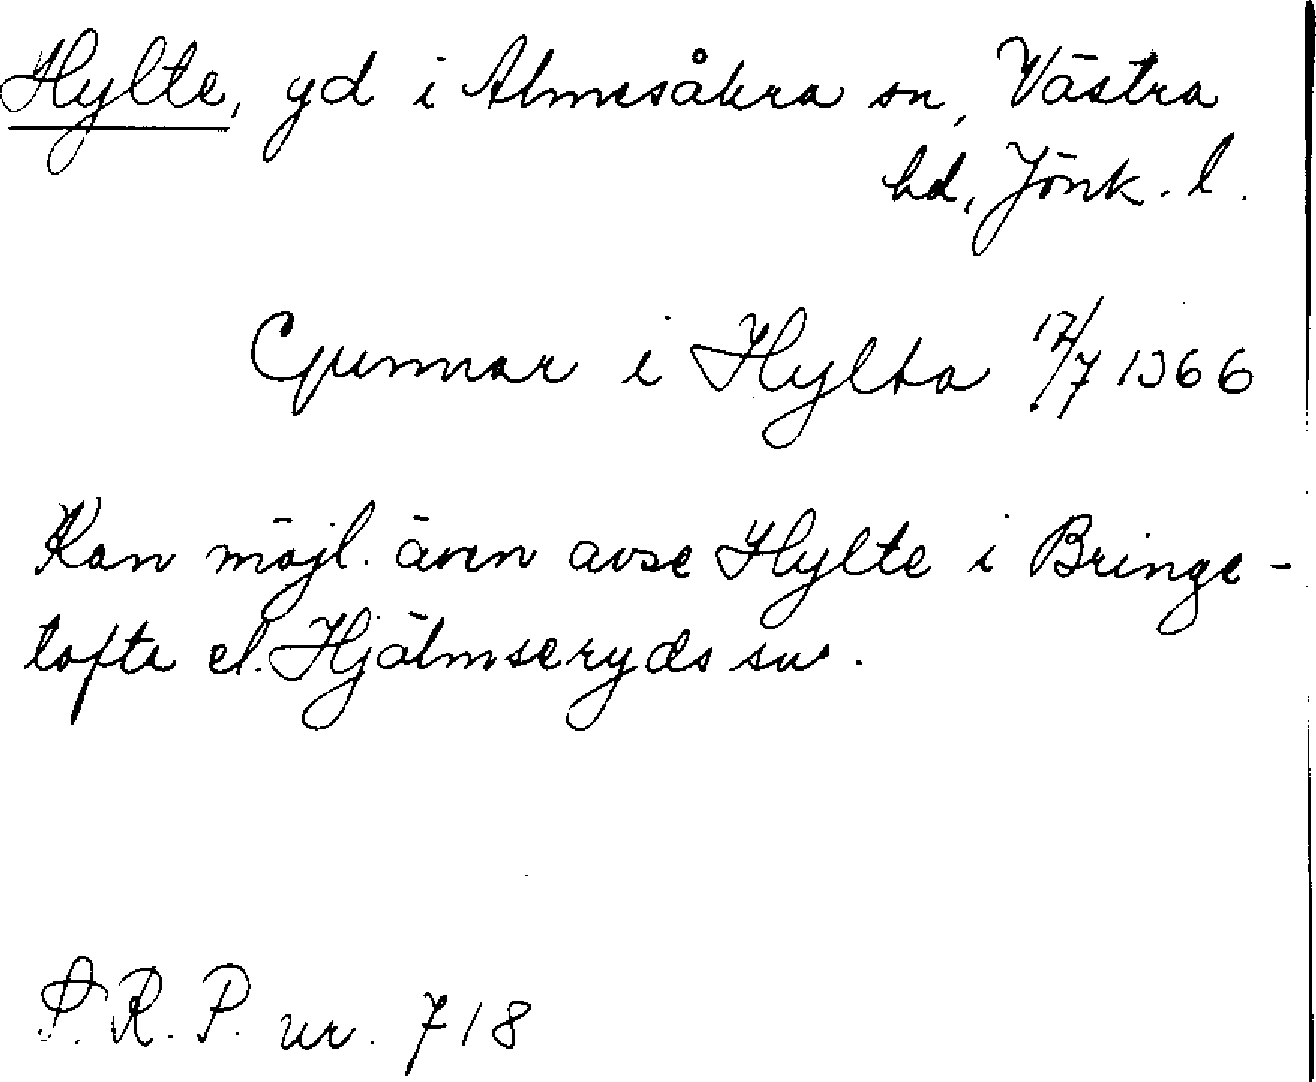 Hylte, yd i Almesåkra sn, Västra
hd, Jönk. l.
Gunnar i Hylta 12/7 1366
Kan möjl. även avse Hylte i Bringe-
tofta el. Hjälmseryds sn.
S.R.P. nr. 718